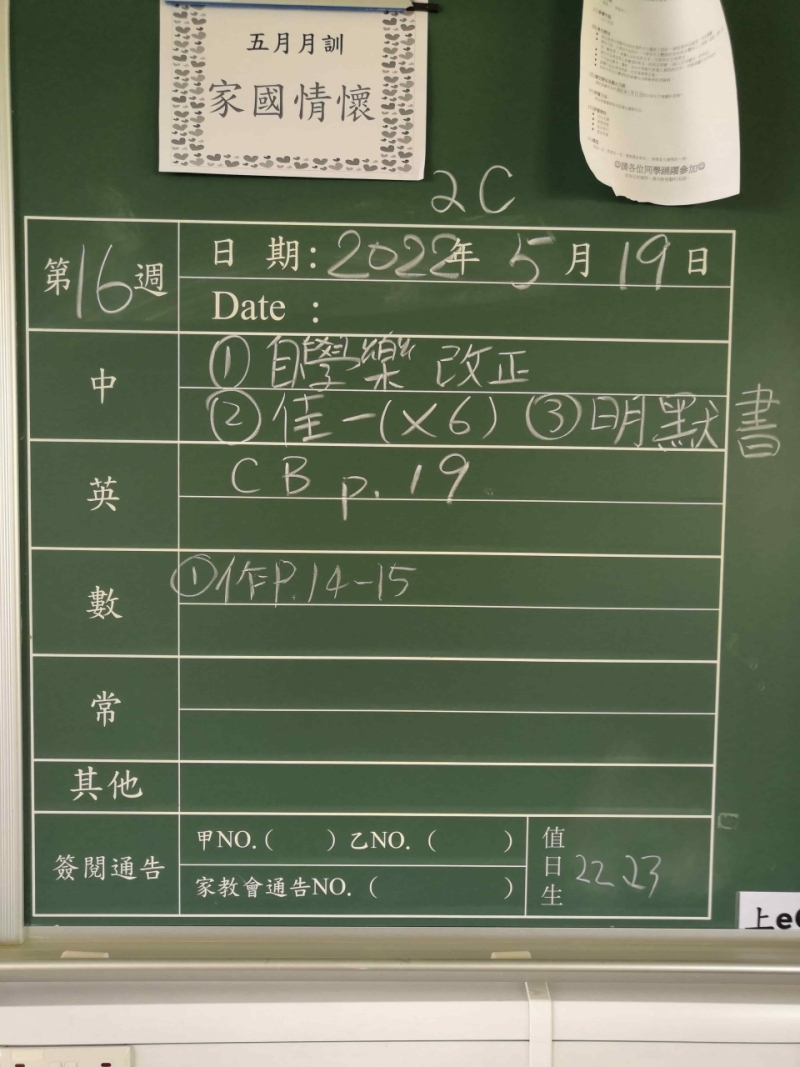 五月月訓
家國情懷
◎請各位同學踴躍參加◎
2C
第16週
日 期：2022年 5月 19日
Date ：
中
① 自學樂 改正
② 佳一(×6) ③明默書
英
CB p. 19
數
①作P.14-15
常
其他
簽閱通告
甲NO.( ) 乙NO. ( )
家教會通告NO. ( )
值日生 22 23
上e